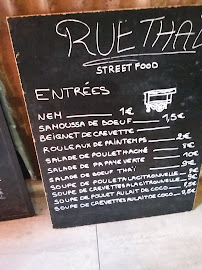 RUE THAÏ
STREET FOOD
ENTRÉES
NEM 1€
SAMOUSSA DE BOEUF 1,5€
BEIGNET DE CREVETTE
ROULEAUX DE PRINTEMPS 2€
SALADE DE POULET HACHÉ 8€
SALADE DE PAPAYE VERTE 10€
SALADE DE BOEUF THAÏ 9€
SOUPE DE POULET A LA CITRONNELLE
SOUPE DE CREVETTES A LA CITRONNELLE
SOUPE DE POULET AU LAIT DE COCO
SOUPE DE CREVETTES AU LAIT DE COCO